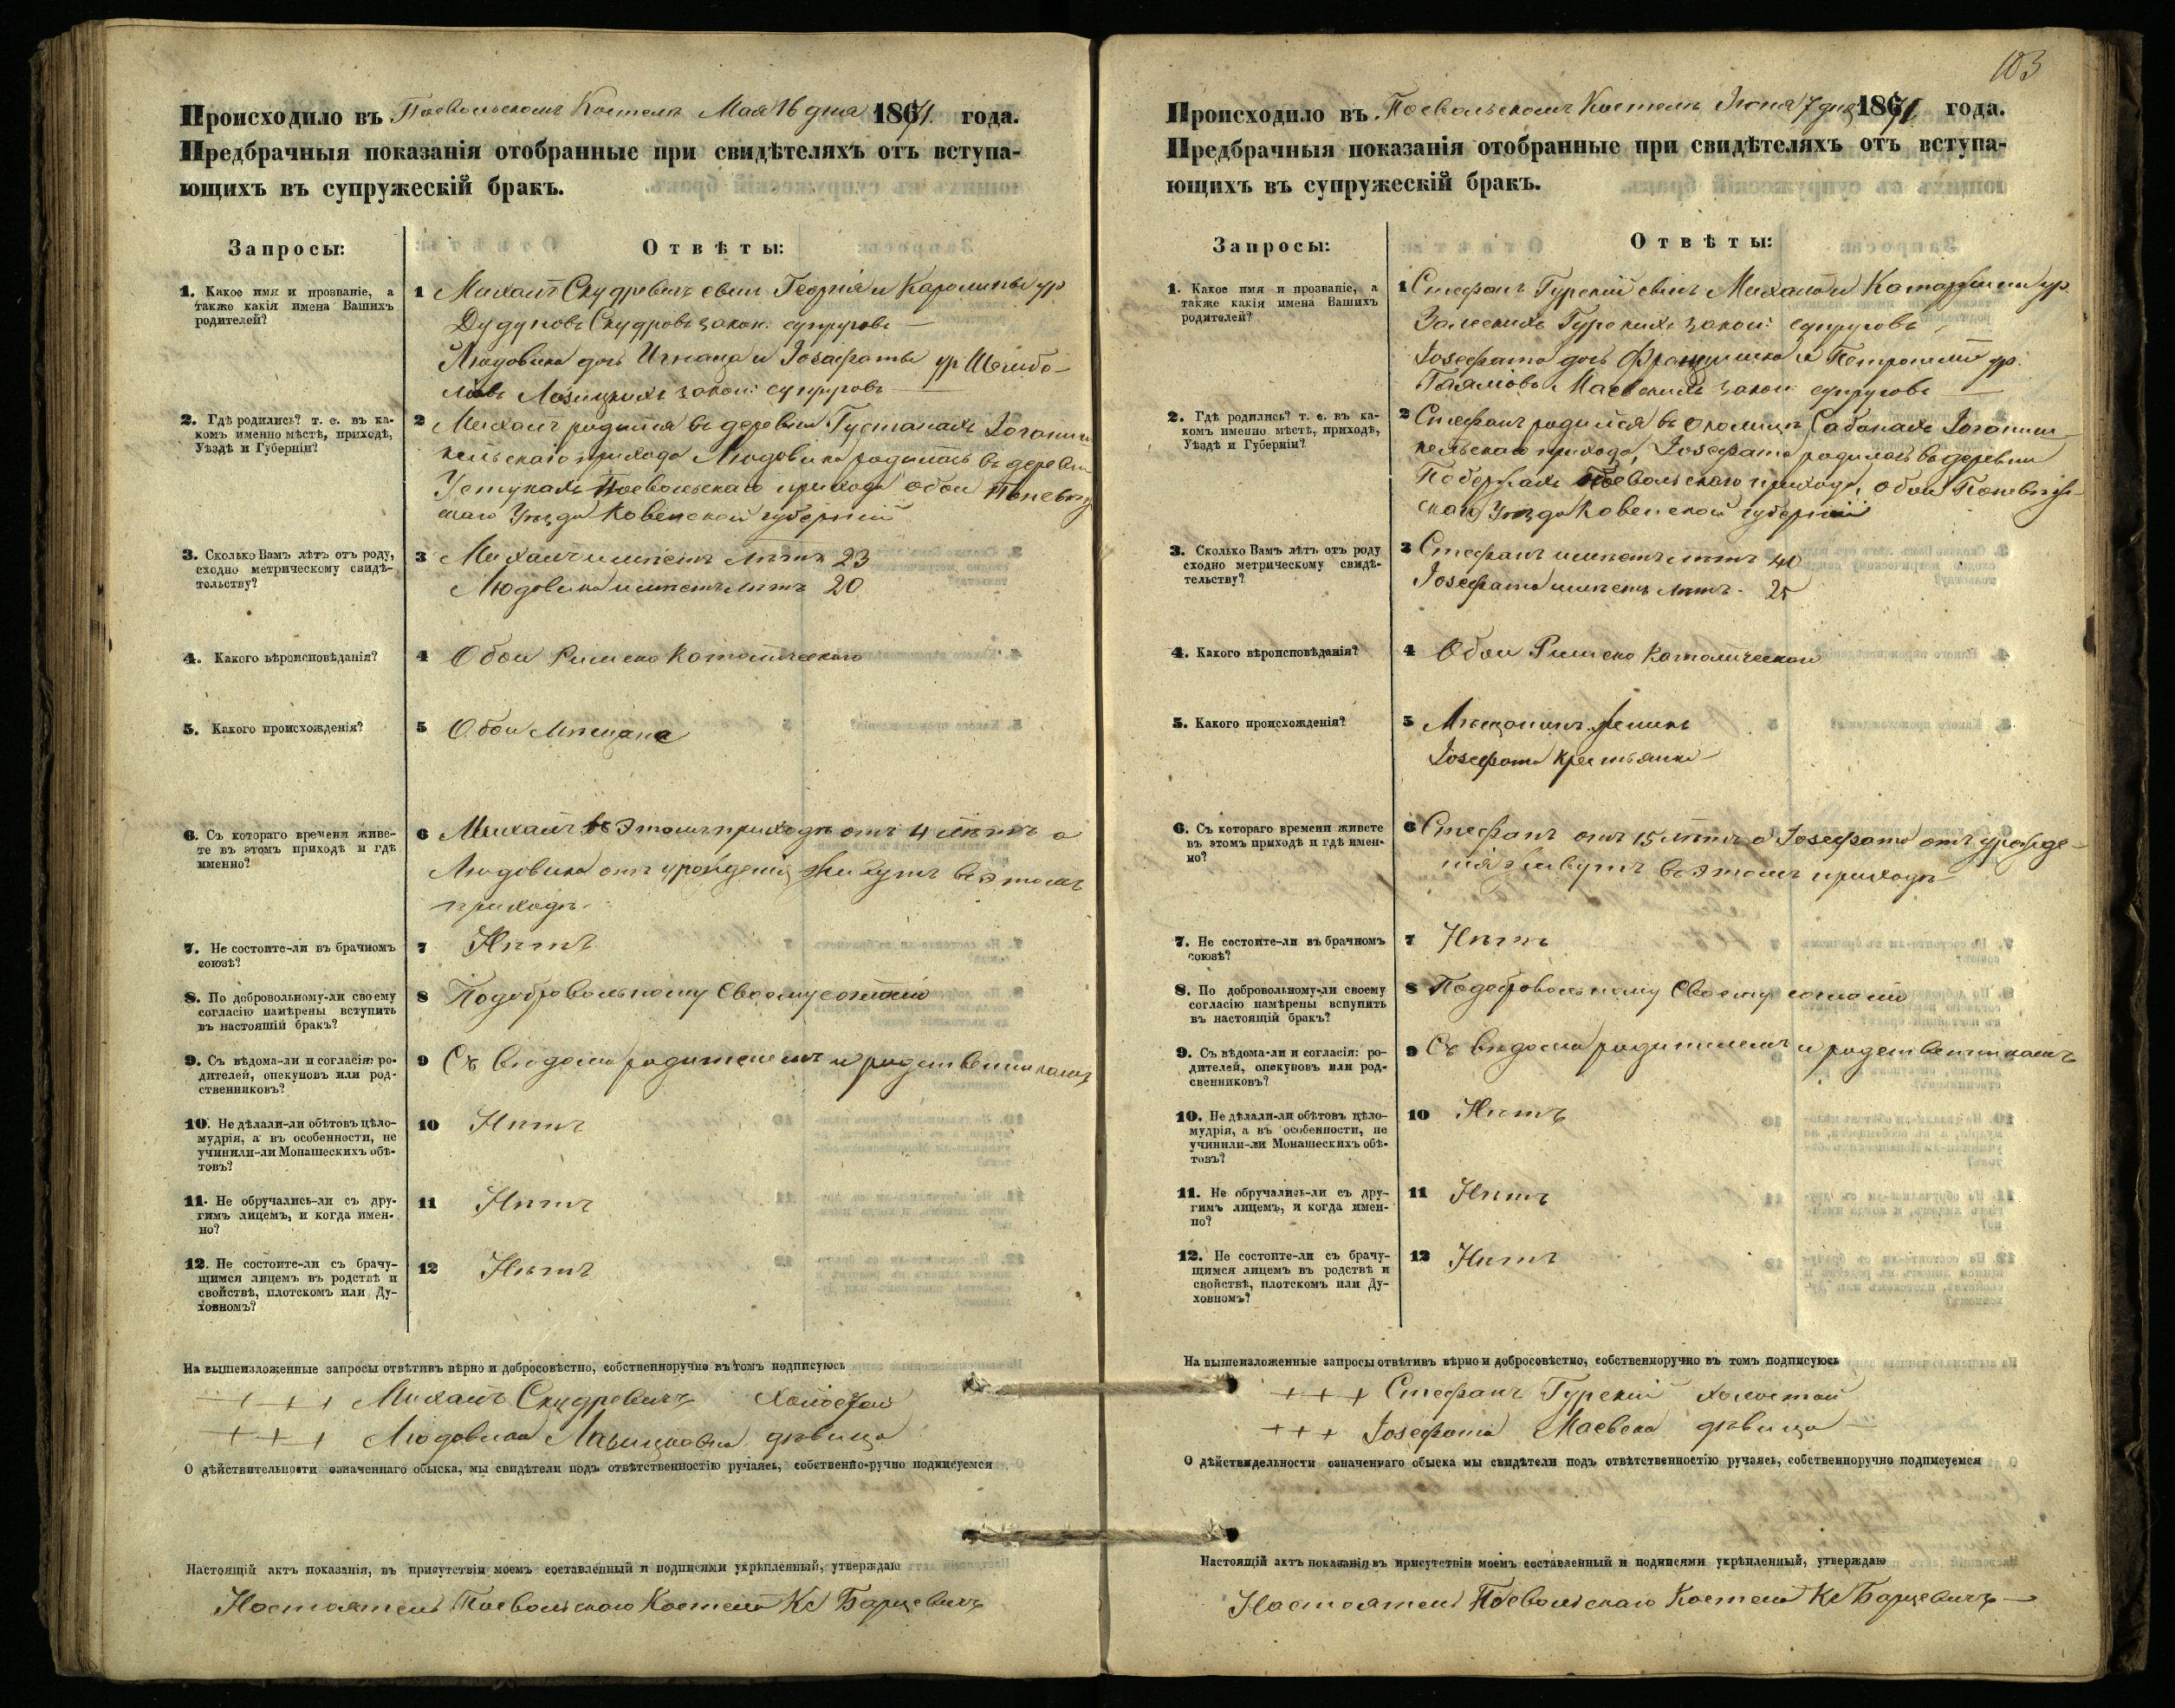 Происходило въ Поевольскомъ Костелѣ Мая 16 дня 1871 года.
Предбрачныя показанія отобранные при свидѣтеляхъ отъ вступа-
ющихъ въ супружескій бракъ.
Запросы: Отвѣты:
1. Какое имя и прозваніе, а
также какія имена Вашихъ
родителей?
1 Михаилъ Скудревичъ сынъ Георгія и Каролины ур
Скудровъ закон: супруговъ
Людовика дочь Игнаца и Іозафаты ур
закон: супруговъ
2. Гдѣ родились? т. е. въ ка-
комъ именно мѣстѣ, приходѣ,
Уѣздѣ и Губерніи?
2 Михаилъ родился въ деревни
прихода Людовика родилась въ деревни
Устукахъ Поевольскаго прихода обои Поневѣж
скаго Уѣзда Ковенской губерніи
3. Сколько Вамъ лѣтъ отъ роду,
сходно метрическому свидѣ-
тельству?
3 Михаилъ имѣетъ лѣтъ 23
Людовика имѣетъ лѣтъ 20
4. Какого вѣроисповѣданія?
4 Обои Римско Католическаго
5. Какого происхожденія?
5 Обои Мѣщане
6. Съ котораго времени живе-
те въ этомъ приходѣ и гдѣ
именно?
6 Михаилъ въ этомъ приходѣ отъ 4 лѣтъ а
Людовика отъ урожденія живутъ въ этомъ
приходѣ
7. Не состоите-ли въ брачномъ
союзѣ?
7 Нѣтъ
8. По добровольному-ли своему
согласію намѣрены вступить
въ настоящій бракъ?
8 По добровольному своему согласію
9. Съ вѣдома-ли и согласія: ро-
дителей, опекуновъ или род-
ственниковъ?
9 Съ вѣдома родителемъ и родственникамъ
10. Не дѣлали-ли обѣтовъ цѣло-
мудрія, а въ особенности, не
учинили-ли Монашескихъ обѣ-
товъ?
10 Нѣтъ
11. Не обручались-ли съ дру-
гимъ лицемъ, и когда имен-
но?
11 Нѣтъ
12. Не состоите-ли съ брачу-
щимся лицемъ въ родствѣ и
свойствѣ, плотскомъ или Ду-
ховномъ?
12 Нѣтъ
На вышеизложенные запросы отвѣтивъ вѣрно и добросовѣстно, собственноручно въ томъ подписуюсь
+ + + Михаилъ Скудревичъ холостой
+ + + Людовика дѣвица
О дѣйствительности означеннаго обыска, мы свидѣтели подъ отвѣтственностію ручаясь, собственно-ручно подписуемся
Настоящій актъ показанія, въ присутствіи моемъ составленный и подписями укрѣпленный, утверждаю
Настоятель Поевольскаго Костела Кс Барцевичъ
103
Происходило въ Поевольскомъ Костелѣ Іюня 7 дня 1871 года.
Предбрачныя показанія отобранные при свидѣтеляхъ отъ вступа-
ющихъ въ супружескій бракъ.
Запросы: Отвѣты:
1. Какое имя и прозваніе, а
также какія имена Вашихъ
родителей?
1 Стефанъ Гурскій сынъ Михала и Катаржины ур.
Залескихъ Гурскихъ закон: супруговъ
Іозефата дочь Францишка и Петронеліи ур.
Маевскихъ закон: супруговъ
2. Гдѣ родились? т. е. въ ка-
комъ именно мѣстѣ, приходѣ,
Уѣздѣ и Губерніи?
2 Стефанъ родился въ околицѣ Сабанахъ
прихода, Іозефата родилась въ деревни
Побержахъ Поевольскаго прихода, обои Поневѣж-
скаго Уѣзда Ковенской губерніи
3. Сколько Вамъ лѣтъ отъ роду
сходно метрическому свидѣ-
тельству?
3 Стефанъ имѣетъ лѣтъ 40
Іозефата имѣетъ лѣтъ 25
4. Какого вѣроисповѣданія?
4 Обои Римско Католической
5. Какого происхожденія?
5 Мѣщанинъ
Іозефата крестьянка
6. Съ котораго времени живете
въ этомъ приходѣ и гдѣ имен-
но?
6 Стефанъ отъ 15 лѣтъ а Іозефата отъ урожде-
нія живутъ въ этомъ приходѣ
7. Не состоите-ли въ брачномъ
союзѣ?
7 Нѣтъ
8. По добровольному-ли своему
согласію намѣрены вспупить
въ настоящій бракъ?
8 По добровольному своему согласію
9. Съ вѣдома-ли и согласія: ро-
дителей, опекуновъ или род-
свенниковъ?
9 Съ вѣдома родителемъ и родственникамъ
10. Не дѣлали-ли обѣтовъ цѣло-
мудрія, а въ особенности, не
учинили-ли Монашескихъ обѣ-
товъ?
10 Нѣтъ
11. Не обручались-ли съ дру-
гимъ лицемъ, и когда имен-
но?
11 Нѣтъ
12. Не состоите-ли съ брачу-
щимся лицемъ въ родствѣ и
свойствѣ, плотскомъ или Ду-
ховномъ?
12 Нѣтъ
На вышеизложенные запросы отвѣтивъ вѣрно и добросовѣстно, собственноручно въ томъ подписуюсь
+ + + Стефанъ Гурскій холостой
+ + + Іозефата Маевска дѣвица
О дѣйствидельности означеннаго обыска мы свидѣтели подъ отвѣтственностію ручаясь, собственноручно подписуемся
Настоящій актъ показанія въ присутствіи моемъ составленный и подписями укрѣпленный, утверждаю
Настоятель Поевольскаго Костела Кс Барцевичъ